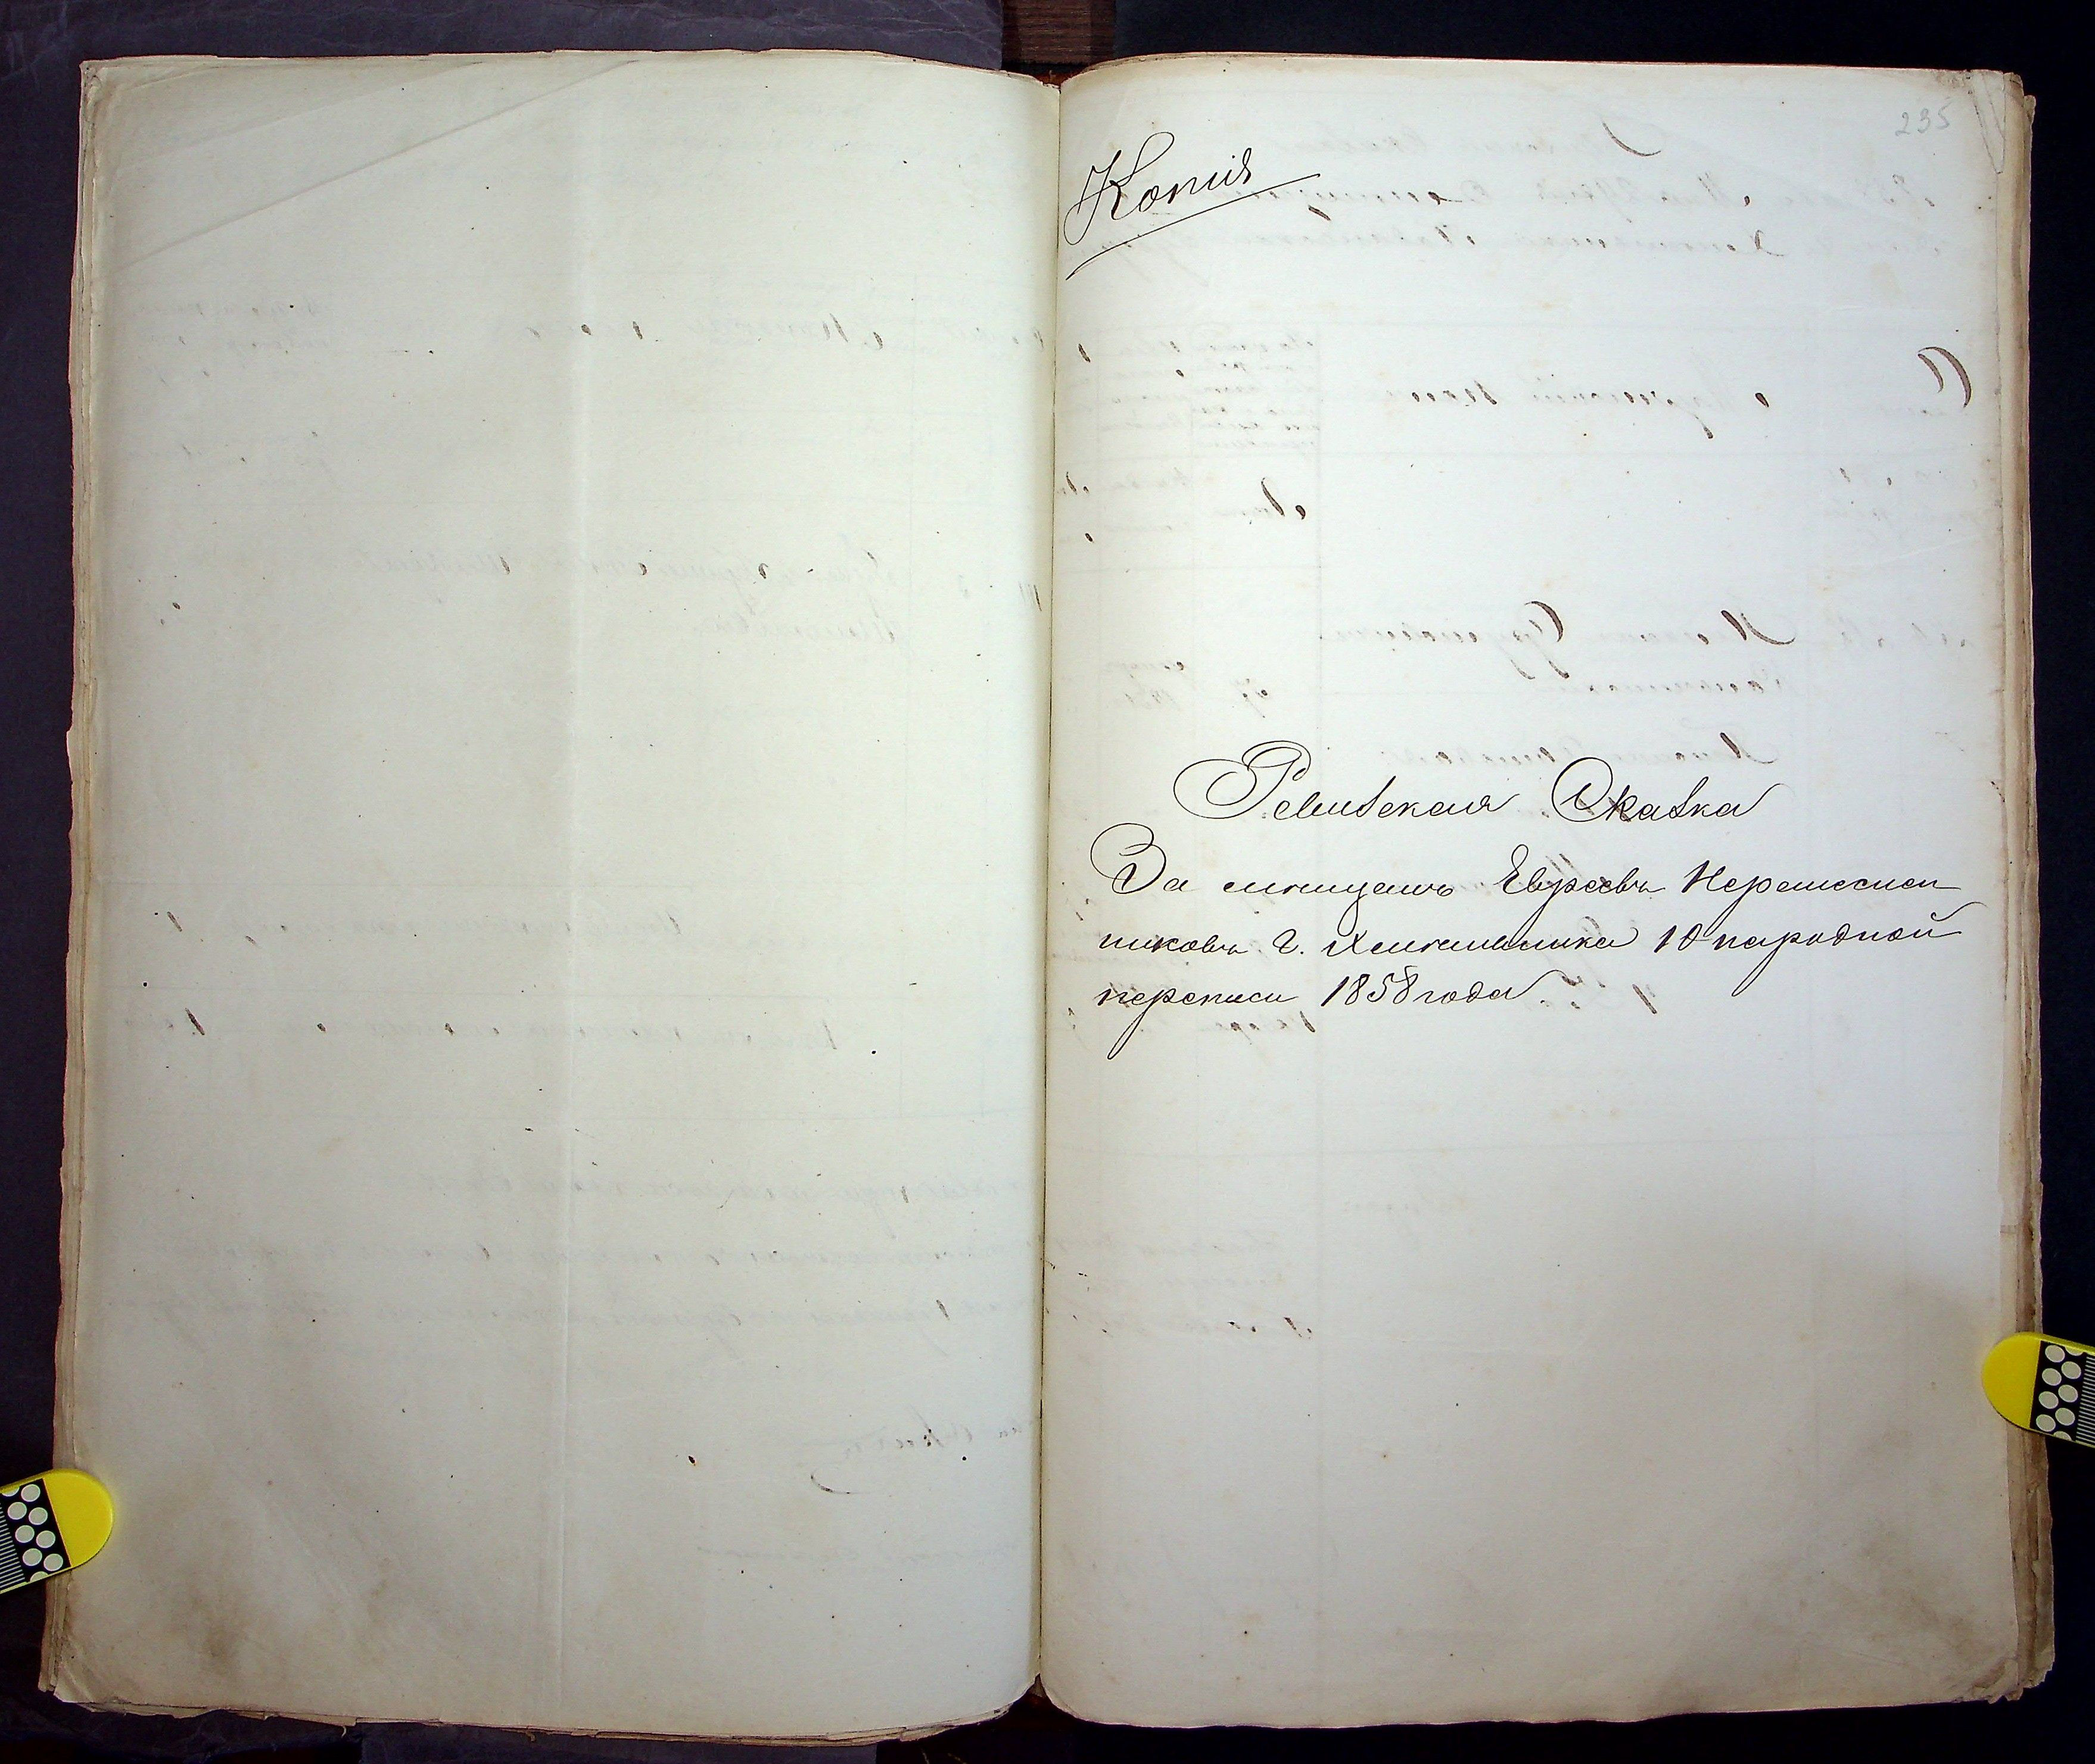 235
Копія
Ревизская Сказка
За мещанъ Евреевъ Неремеслен
никовъ г. Хмѣльника 10 народной
переписи 1858 года